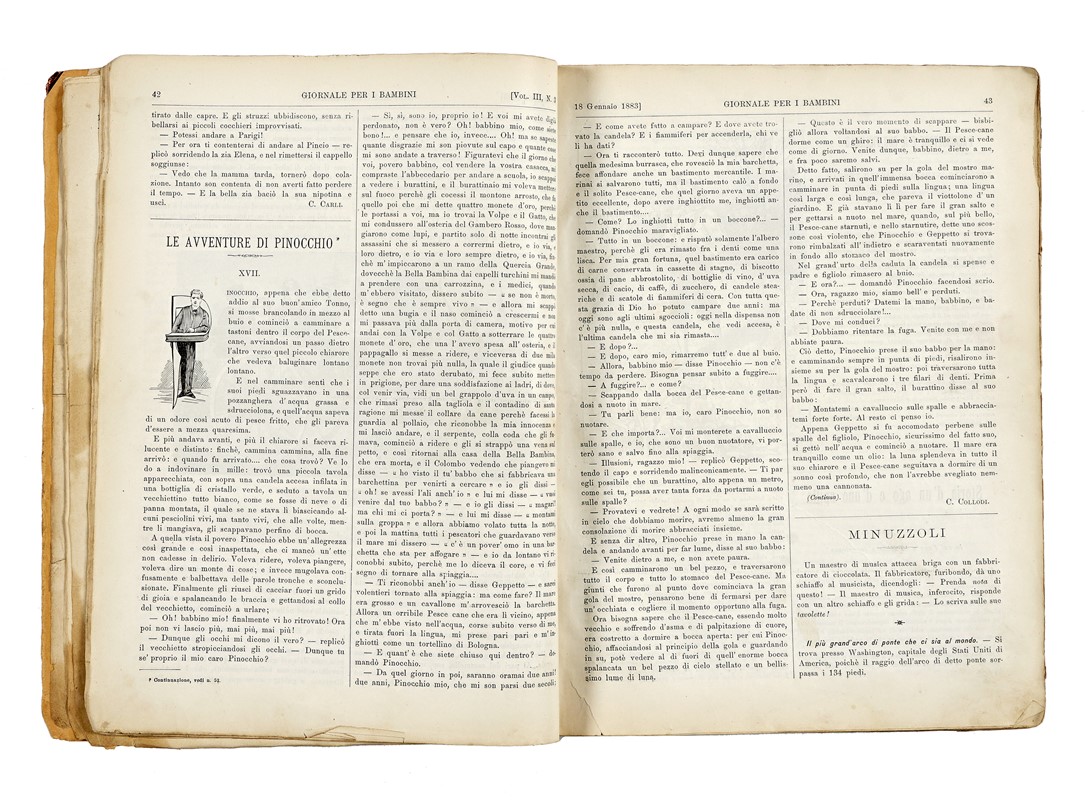 42
GIORNALE PER I BAMBINI
[Vol. III, N.
tirato dalle capre. E gli struzzi ubbidiscono, senza ri-
bellarsi ai piccoli cocchieri improvvisati.
— Potessi andare a Parigi!
— Per ora ti contenterai di andare al Pincio — re-
plicò sorridendo la zia Elena, e nel rimettersi il cappello
soggiunse:
— Vedo che la mamma tarda, tornerò dopo cola-
zione. Intanto son contenta di averti fatto perdere
il tempo. — E la bella zia baciò la sua nipotina e
uscì.
C. Carli.
LE AVVENTURE DI PINOCCHIO *
XVII.
INOCCHIO, appena che ebbe detto
addio al suo buon'amico Tonno,
si mosse brancolando in mezzo al
buio e cominciò a camminare a
tastoni dentro il corpo del Pesce-
cane, avviandosi un passo dietro
l'altro verso quel piccolo chiarore
che vedeva baluginare lontano
lontano.
E nel camminare sentì che i
suoi piedi sguazzavano in una
pozzanghera d'acqua grassa e
sdrucciolona, e quell'acqua sapeva
di un odore così acuto di pesce fritto, che gli pareva
d'essere a mezza quaresima.
E più andava avanti, e più il chiarore si faceva ri-
lucente e distinto: finchè, cammina cammina, alla fine
arrivò: e quando fu arrivato.... che cosa trovò? Ve lo
do a indovinare in mille: trovò una piccola tavola
apparecchiata, con sopra una candela accesa infilata in
una bottiglia di cristallo verde, e seduto a tavola un
vecchiettino tutto bianco, come se fosse di neve o di
panna montata, il quale se ne stava lì biascicando al-
cuni pesciolini vivi, ma tanto vivi, che alle volte, men-
tre li mangiava, gli scappavano perfino di bocca.
A quella vista il povero Pinocchio ebbe un'allegrezza
così grande e così inaspettata, che ci mancò un'ette
non cadesse in delirio. Voleva ridere, voleva piangere,
voleva dire un monte di cose; e invece mugolava con-
fusamente e balbettava delle parole tronche e sconclu-
sionate. Finalmente gli riuscì di cacciar fuori un grido
di gioia e spalancando le braccia e gettandosi al collo
del vecchietto, cominciò a urlare;
— Oh! babbino mio! finalmente vi ho ritrovato! Ora
poi non vi lascio più, mai più, mai più!
— Dunque gli occhi mi dicono il vero? — replicò
il vecchietto stropicciandosi gli occhi. — Dunque tu
se' proprio il mio caro Pinocchio?
* Continuazione, vedi n. 52.
— Sì, sì, sono io, proprio io! E voi mi avete digià
perdonato, non è vero? Oh! babbino mio, come siete
bono!... e pensare che io, invece.... Oh! ma se sapeste
quante disgrazie mi son piovute sul capo e quante cose
mi sono andate a traverso! Figuratevi che il giorno che
voi, povero babbino, col vendere la vostra casacca, mi
compraste l'abbecedario per andare a scuola, io scappai
a vedere i burattini, e il burattinaio mi voleva mettere
sul fuoco perchè gli cocessi il montone arrosto, che fu
quello poi che mi dette quattro monete d'oro, perchè
le portassi a voi, ma io trovai la Volpe e il Gatto, che
mi condussero all'osteria del Gambero Rosso, dove man-
giarono come lupi, e partito solo di notte incontrai gli
assassini che si messero a corrermi dietro, e io via, e
loro dietro, e io via e loro sempre dietro, e io via, fin-
chè m'impiccarono a un ramo della Quercia Grande,
dovecchè la Bella Bambina dai capelli turchini mi mandò
a prendere con una carrozzina, e i medici, quando
m'ebbero visitato, dissero subito — « se non è morto,
è segno che è sempre vivo » — e allora mi scappò
detto una bugìa e il naso cominciò a crescermi e non
mi passava più dalla porta di camera, motivo per cui
andai con la Volpe e col Gatto a sotterrare le quattro
monete d'oro, che una l'avevo spesa all'osteria, e il
pappagallo si messe a ridere, e viceversa di due mila
monete non trovai più nulla, la quale il giudice quando
seppe che ero stato derubato, mi fece subito mettere
in prigione, per dare una soddisfazione ai ladri, di dove,
col venir via, vidi un bel grappolo d'uva in un campo,
che rimasi preso alla tagliola e il contadino di santa
ragione mi messe il collare da cane perchè facessi la
guardia al pollaio, che riconobbe la mia innocenza e
mi lasciò andare, e il serpente, colla coda che gli fu-
mava, cominciò a ridere e gli si strappò una vena sul
petto, e così ritornai alla casa della Bella Bambina,
che era morta, e il Colombo vedendo che piangevo mi
disse — « ho visto il tu' babbo che si fabbricava una
barchettina per venirti a cercare » e io gli dissi —
« oh! se avessi l'ali anch'io » e lui mi disse — « vuoi
venire dal tuo babbo? » — e io gli dissi — « magari!
ma chi mi ci porta? » — e lui mi disse — « montami
sulla groppa » e allora abbiamo volato tutta la notte,
e poi la mattina tutti i pescatori che guardavano verso
il mare mi dissero — « c'è un pover'omo in una bar-
chetta che sta per affogare » — e io da lontano vi ri-
conobbi subito, perchè me lo diceva il core, e vi feci
segno di tornare alla spiaggia....
— Ti riconobbi anch'io — disse Geppetto — e sarei
volentieri tornato alla spiaggia: ma come fare? Il mare
era grosso e un cavallone m'arrovesciò la barchetta.
Allora un orribile Pesce cane che era lì vicino, appena
che m'ebbe visto nell'acqua, corse subito verso di me,
e tirata fuori la lingua, mi prese pari pari e m'in-
ghiottì come un tortellino di Bologna.
— E quant'è che siete chiuso qui dentro? — do-
mandò Pinocchio.
— Da quel giorno in poi, saranno oramai due anni:
due anni, Pinocchio mio, che mi son parsi due secoli:
18 Gennaio 1883]
GIORNALE PER I BAMBINI
43
— E come avete fatto a campare? E dove avete tro-
vato la candela? E i fiammiferi per accenderla, chi ve
li ha dati?
— Ora ti racconterò tutto. Devi dunque sapere che
quella medesima burrasca, che rovesciò la mia barchetta,
fece affondare anche un bastimento mercantile. I ma-
rinai si salvarono tutti, ma il bastimento calò a fondo
e il solito Pesce-cane, che quel giorno aveva un appe-
tito eccellente, dopo avere inghiottito me, inghiottì an-
che il bastimento....
— Come? Lo inghiottì tutto in un boccone?... —
domandò Pinocchio maravigliato.
— Tutto in un boccone: e risputò solamente l'albero
maestro, perchè gli era rimasto fra i denti come una
lisca. Per mia gran fortuna, quel bastimento era carico
di carne conservata in cassette di stagno, di biscotto
ossia di pane abbrostolito, di bottiglie di vino, d'uva
secca, di cacio, di caffè, di zucchero, di candele stea-
riche e di scatole di fiammiferi di cera. Con tutta que-
sta grazia di Dio ho potuto campare due anni: ma
oggi sono agli ultimi sgoccioli: oggi nella dispensa non
c'è più nulla, e questa candela, che vedi accesa, è
l'ultima candela che mi sia rimasta....
— E dopo?...
— E dopo, caro mio, rimarremo tutt'e due al buio.
— Allora, babbino mio — disse Pinocchio — non c'è
tempo da perdere. Bisogna pensar subito a fuggire....
— A fuggire?... e come?
— Scappando dalla bocca del Pesce-cane e gettan-
dosi a nuoto in mare.
— Tu parli bene: ma io, caro Pinocchio, non so
nuotare.
— E che importa?... Voi mi monterete a cavalluccio
sulle spalle, e io, che sono un buon nuotatore, vi por-
terò sano e salvo fino alla spiaggia.
— Illusioni, ragazzo mio! — replicò Geppetto, sco-
tendo il capo e sorridendo malinconicamente. — Ti par
egli possibile che un burattino, alto appena un metro,
come sei tu, possa aver tanta forza da portarmi a nuoto
sulle spalle?
— Provatevi e vedrete! A ogni modo se sarà scritto
in cielo che dobbiamo morire, avremo almeno la gran
consolazione di morire abbracciati insieme.
E senza dir altro, Pinocchio prese in mano la can-
dela e andando avanti per far lume, disse al suo babbo:
— Venite dietro a me, e non avete paura.
E così camminarono un bel pezzo, e traversarono
tutto il corpo e tutto lo stomaco del Pesce-cane. Ma
giunti che furono al punto dove cominciava la gran
gola del mostro, pensarono bene di fermarsi per dare
un'occhiata e cogliere il momento opportuno alla fuga.
Ora bisogna sapere che il Pesce-cane, essendo molto
vecchio e soffrendo d'asma e di palpitazione di cuore,
era costretto a dormire a bocca aperta: per cui Pinoc-
chio, affacciandosi al principio della gola e guardando
in su, potè vedere al di fuori di quell'enorme bocca
spalancata un bel pezzo di cielo stellato e un bellis-
simo lume di luna.
— Questo è il vero momento di scappare — bisbi-
gliò allora voltandosi al suo babbo. — Il Pesce-cane
dorme come un ghiro: il mare è tranquillo e ci si vede
come di giorno. Venite dunque, babbino, dietro a me,
e fra poco saremo salvi.
Detto fatto, salirono su per la gola del mostro ma-
rino, e arrivati in quell'immensa bocca cominciarono a
camminare in punta di piedi sulla lingua; una lingua
così larga e così lunga, che pareva il viottolone d'un
giardino. E già stavano lì lì per fare il gran salto e
per gettarsi a nuoto nel mare, quando, sul più bello,
il Pesce-cane starnutì, e nello starnutire, dette uno scos-
sone così violento, che Pinocchio e Geppetto si trova-
rono rimbalzati all'indietro e scaraventati nuovamente
in fondo allo stomaco del mostro.
Nel grand'urto della caduta la candela si spense e
padre e figliolo rimasero al buio.
— E ora?... — domandò Pinocchio facendosi serio.
— Ora, ragazzo mio, siamo bell'e perduti.
— Perchè perduti? Datemi la mano, babbino, e ba-
date di non sdrucciolare!...
— Dove mi conduci?
— Dobbiamo ritentare la fuga. Venite con me e non
abbiate paura.
Ciò detto, Pinocchio prese il suo babbo per la mano:
e camminando sempre in punta di piedi, risalirono in-
sieme su per la gola del mostro: poi traversarono tutta
la lingua e scavalcarono i tre filari di denti. Prima
però di fare il gran salto, il burattino disse al suo
babbo:
— Montatemi a cavalluccio sulle spalle e abbraccia-
temi forte forte. Al resto ci penso io.
Appena Geppetto si fu accomodato perbene sulle
spalle del figliolo, Pinocchio, sicurissimo del fatto suo,
si gettò nell'acqua e cominciò a nuotare. Il mare era
tranquillo come un olio: la luna splendeva in tutto il
suo chiarore e il Pesce-cane seguitava a dormire di un
sonno così profondo, che non l'avrebbe svegliato nem-
meno una cannonata.
(Continua).
C. Collodi.
MINUZZOLI
Un maestro di musica attacca briga con un fabbri-
catore di cioccolata. Il fabbricatore, furibondo, dà uno
schiaffo al musicista, dicendogli: — Prenda nota di
questo! — Il maestro di musica, inferocito, risponde
con un altro schiaffo e gli grida: — Lo scriva sulle sue
tavolette!
Il più grand'arco di ponte che ci sia al mondo. — Si
trova presso Washington, capitale degli Stati Uniti di
America, poichè il raggio dell'arco di detto ponte sor-
passa i 134 piedi.